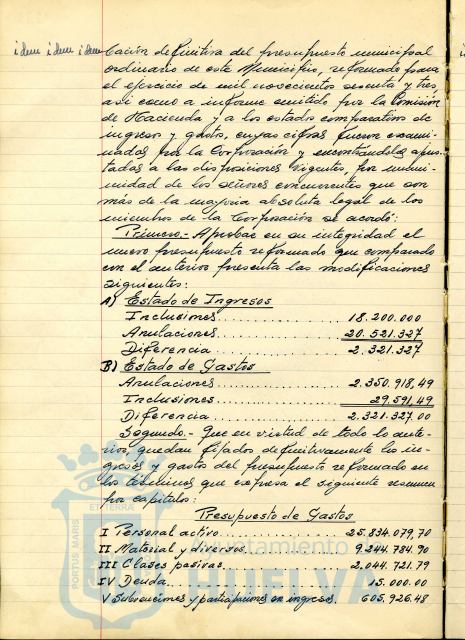 idem idem idem
bación definitiva del presupuesto municipal
ordinario de este Municipio, reformado para
el ejercicio de mil novecientos sesenta y tres,
así como a informe emitido por la Comisión
de Hacienda y a los estados comparativos de
ingresos y gastos, cuyas cifras fueron exami-
nadas por la Corporación y encontrándolas ajus-
tadas a las disposiciones vigentes, por unani-
midad de los señores concurrentes que son
más de la mayoría absoluta legal de los
miembros de la Corporación se acordó:
Primero.- Aprobar en su integridad el
nuevo presupuesto reformado que comparado
con el anterior presenta las modificaciones
siguientes:
A) Estado de Ingresos
Inclusiones............ 18.200.000
Anulaciones............ 20.521.327
Diferencia............ 2.321.327
B) Estado de Gastos
Anulaciones............ 2.350.918,49
Inclusiones............ 29.591,49
Diferencia............ 2.321.327.00
Segundo.- Que en virtud de todo lo ante-
rior, quedan fijados definitivamente los in-
gresos y gastos del presupuesto reformado en
los términos que expresa el siguiente resumen
por capítulos:
Presupuesto de Gastos
I Personal activo............ 25.834.079,70
II Material y diversos............ 9.244.784.90
III Clases pasivas............ 2.044.721.79
IV Deuda............ 15.000.00
V Subvenciones y participaciones en ingresos. 605.926.48
PORTUS MARIS
ET TERRÆ
Ayuntamiento de
HUELVA